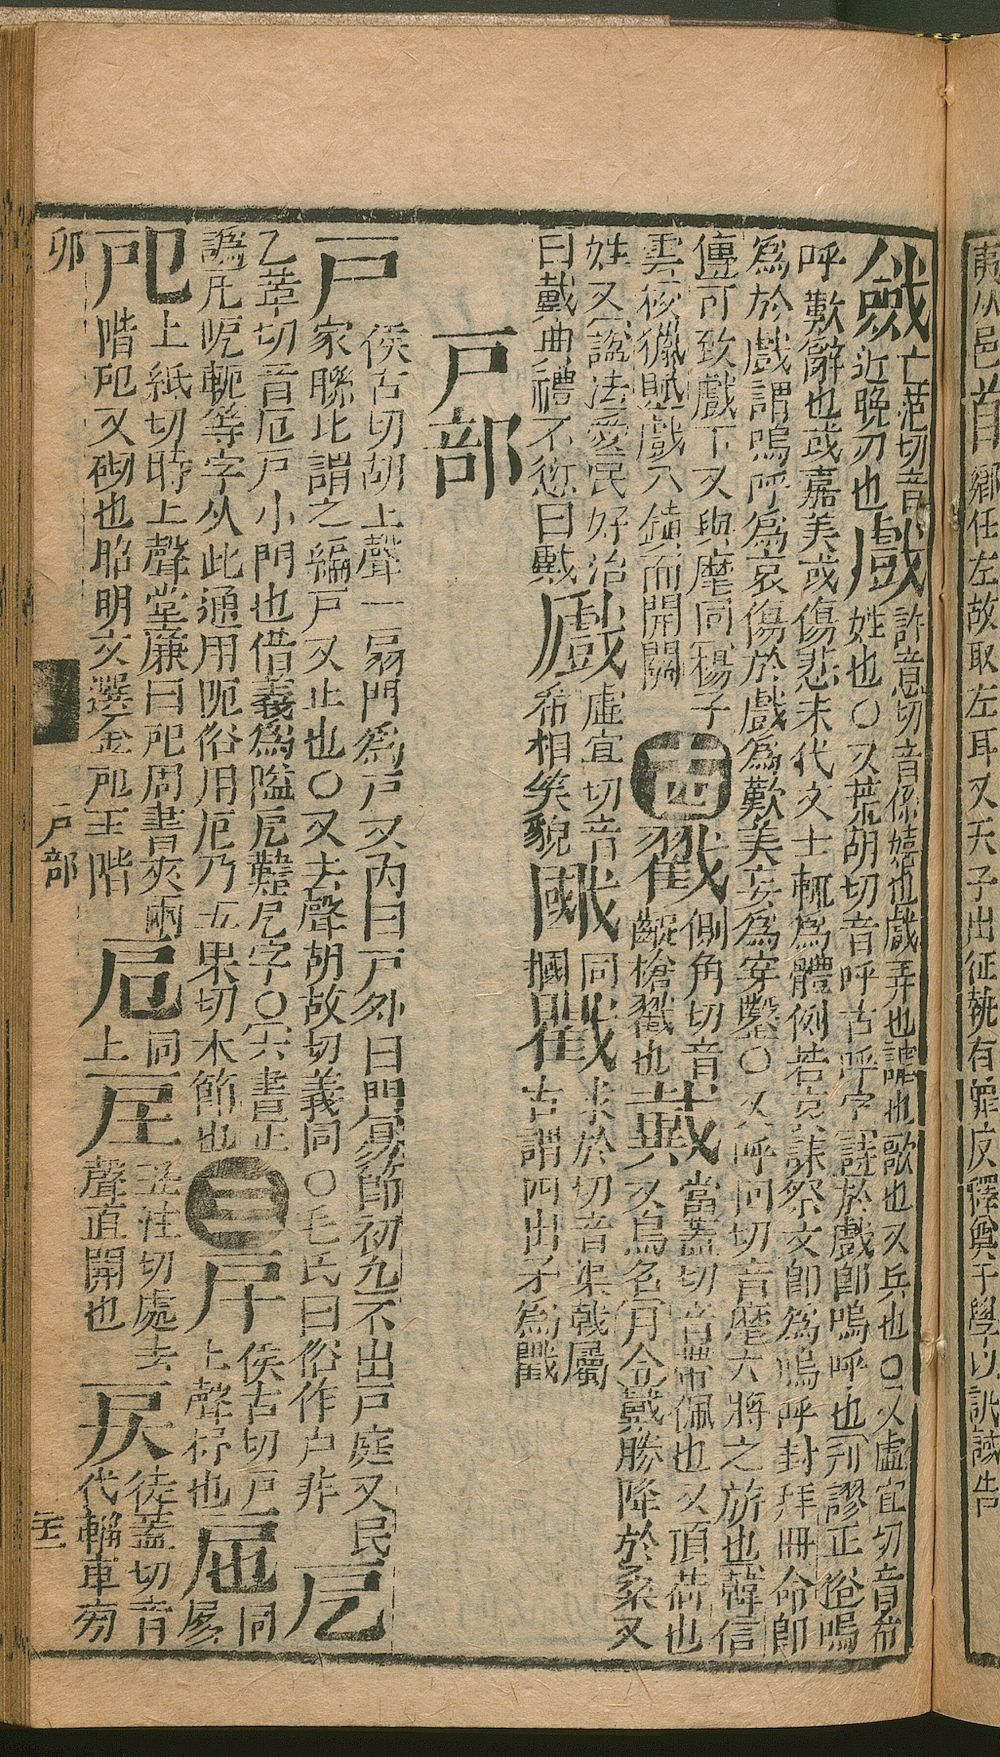 䔍从邑首鄉任左故取左耳又天子出征執有罪反釋奠于學以訊馘告
亡范切音
近晚刃也
戲
許意切音係嬉也戲弄也謔也歌也又兵也○又虛宜切音希
姓也○又荒胡切音呼古呼字詩於戲即嗚呼也刊謬正俗嗚
呼歎辭也或嘉美或傷悲末代文士輒為體例若哀誄祭文即為嗚呼封拜冊命即
為於戲謂嗚呼為哀傷於戲為歎美妄為穿鑿○又呼何切音麾大將之旂也韓信
傳可致戲下又與麾同楊子
雲校獵賦戲八鎮而開關
十四
戳
側角切音
齪槍戳也
戴
當蓋切音帶佩也又頂荷也
又鳥名月令戴勝降於桑又
姓又諡法愛民好治
曰戴典禮不愆曰戴
戱
虛宜切音
希相笑貌
同
摑
戵
求於切音渠戟屬
古謂四出矛為戵
戶部
戶
侯古切胡上聲一扇門為戶又內曰戶外曰門易節初九不出戶庭又民
家聯比謂之編戶又止也○又去聲胡故切義同○毛氏曰俗作户非
戹
乙革切音厄戶小門也借義為隘戹難戹字○六書正
譌凡呃軛等字从此通用阨俗用厄乃五果切木節也
三
侯古切戶
上聲抒也
同
戺
上紙切時上聲堂廉曰戺周書夾兩
階戺又砌也昭明文選金戺玉階
同
上
丑注切處去
聲直開也
徒蓋切音
代輜車旁
卯
戶部